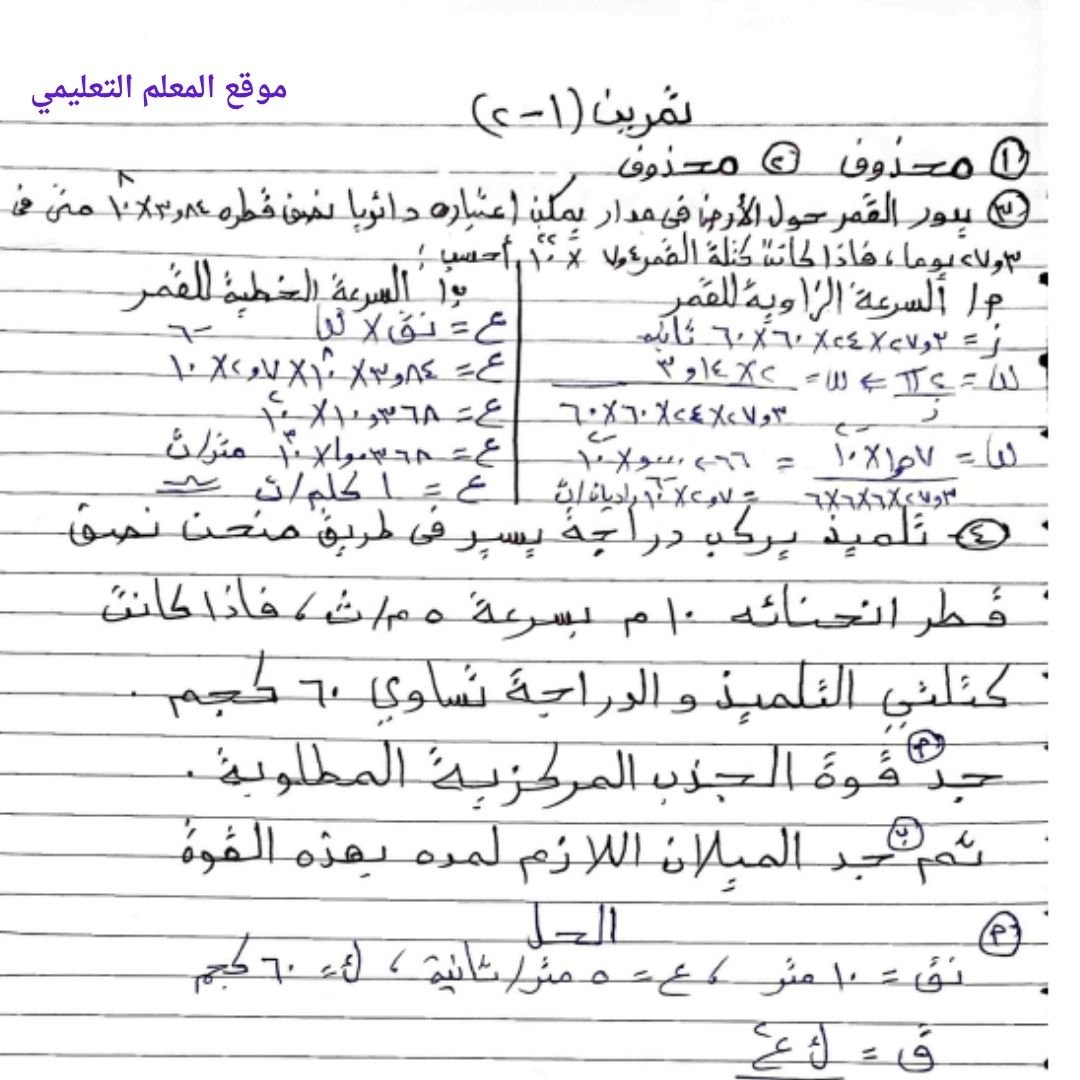 موقع المعلم التعليمي
تمرين (١-٢)
① محذوف ② محذوف
③ يدور القمر حول الأرض في مدار يمكن اعتباره دائريا نصف قطره ٣,٨٤×١٠^٨ متر في
٢٧,٣ يوما، فاذا كانت كتلة القمر ٧,٤ × ١٠^٢٢ أحسب :
أ/ السرعة الزاوية للقمر
ز = ٢٧,٣×٢٤×٦٠×٦٠ ثانيه
س = ٢π/ز ← س = ٢×٣,١٤ / ٢٧,٣×٢٤×٦٠×٦٠
= ٢,٧×١٠^-٦ راديان/ث
ب/ السرعة الخطية للقمر
ع = نق × س
ع = ٣,٨٤×١٠^٨×٢,٧×١٠^-٦
ع = ١٠,٣٦٨×١٠^٢
ع = ١,٠٣٦٨×١٠^٣ متر/ث
ع = ١ كلم/ث
④- تلميذ يركب دراجة يسير في طريق منحن نصق
قطر انحنائه ١٠ م بسرعة ٥ م/ث، فاذا كانت
كتلتي التلميذ والدراجة تساوي ٦٠ كجم .
جد أ قوة الجذب المركزية المطلوبة .
ثم ب جد الميلان اللازم لمده بهذه القوة
الحل
أ
نق = ١٠ متر ، ع = ٥ متر/ثانية ، ك = ٦٠ كجم
ق = ك ع^٢